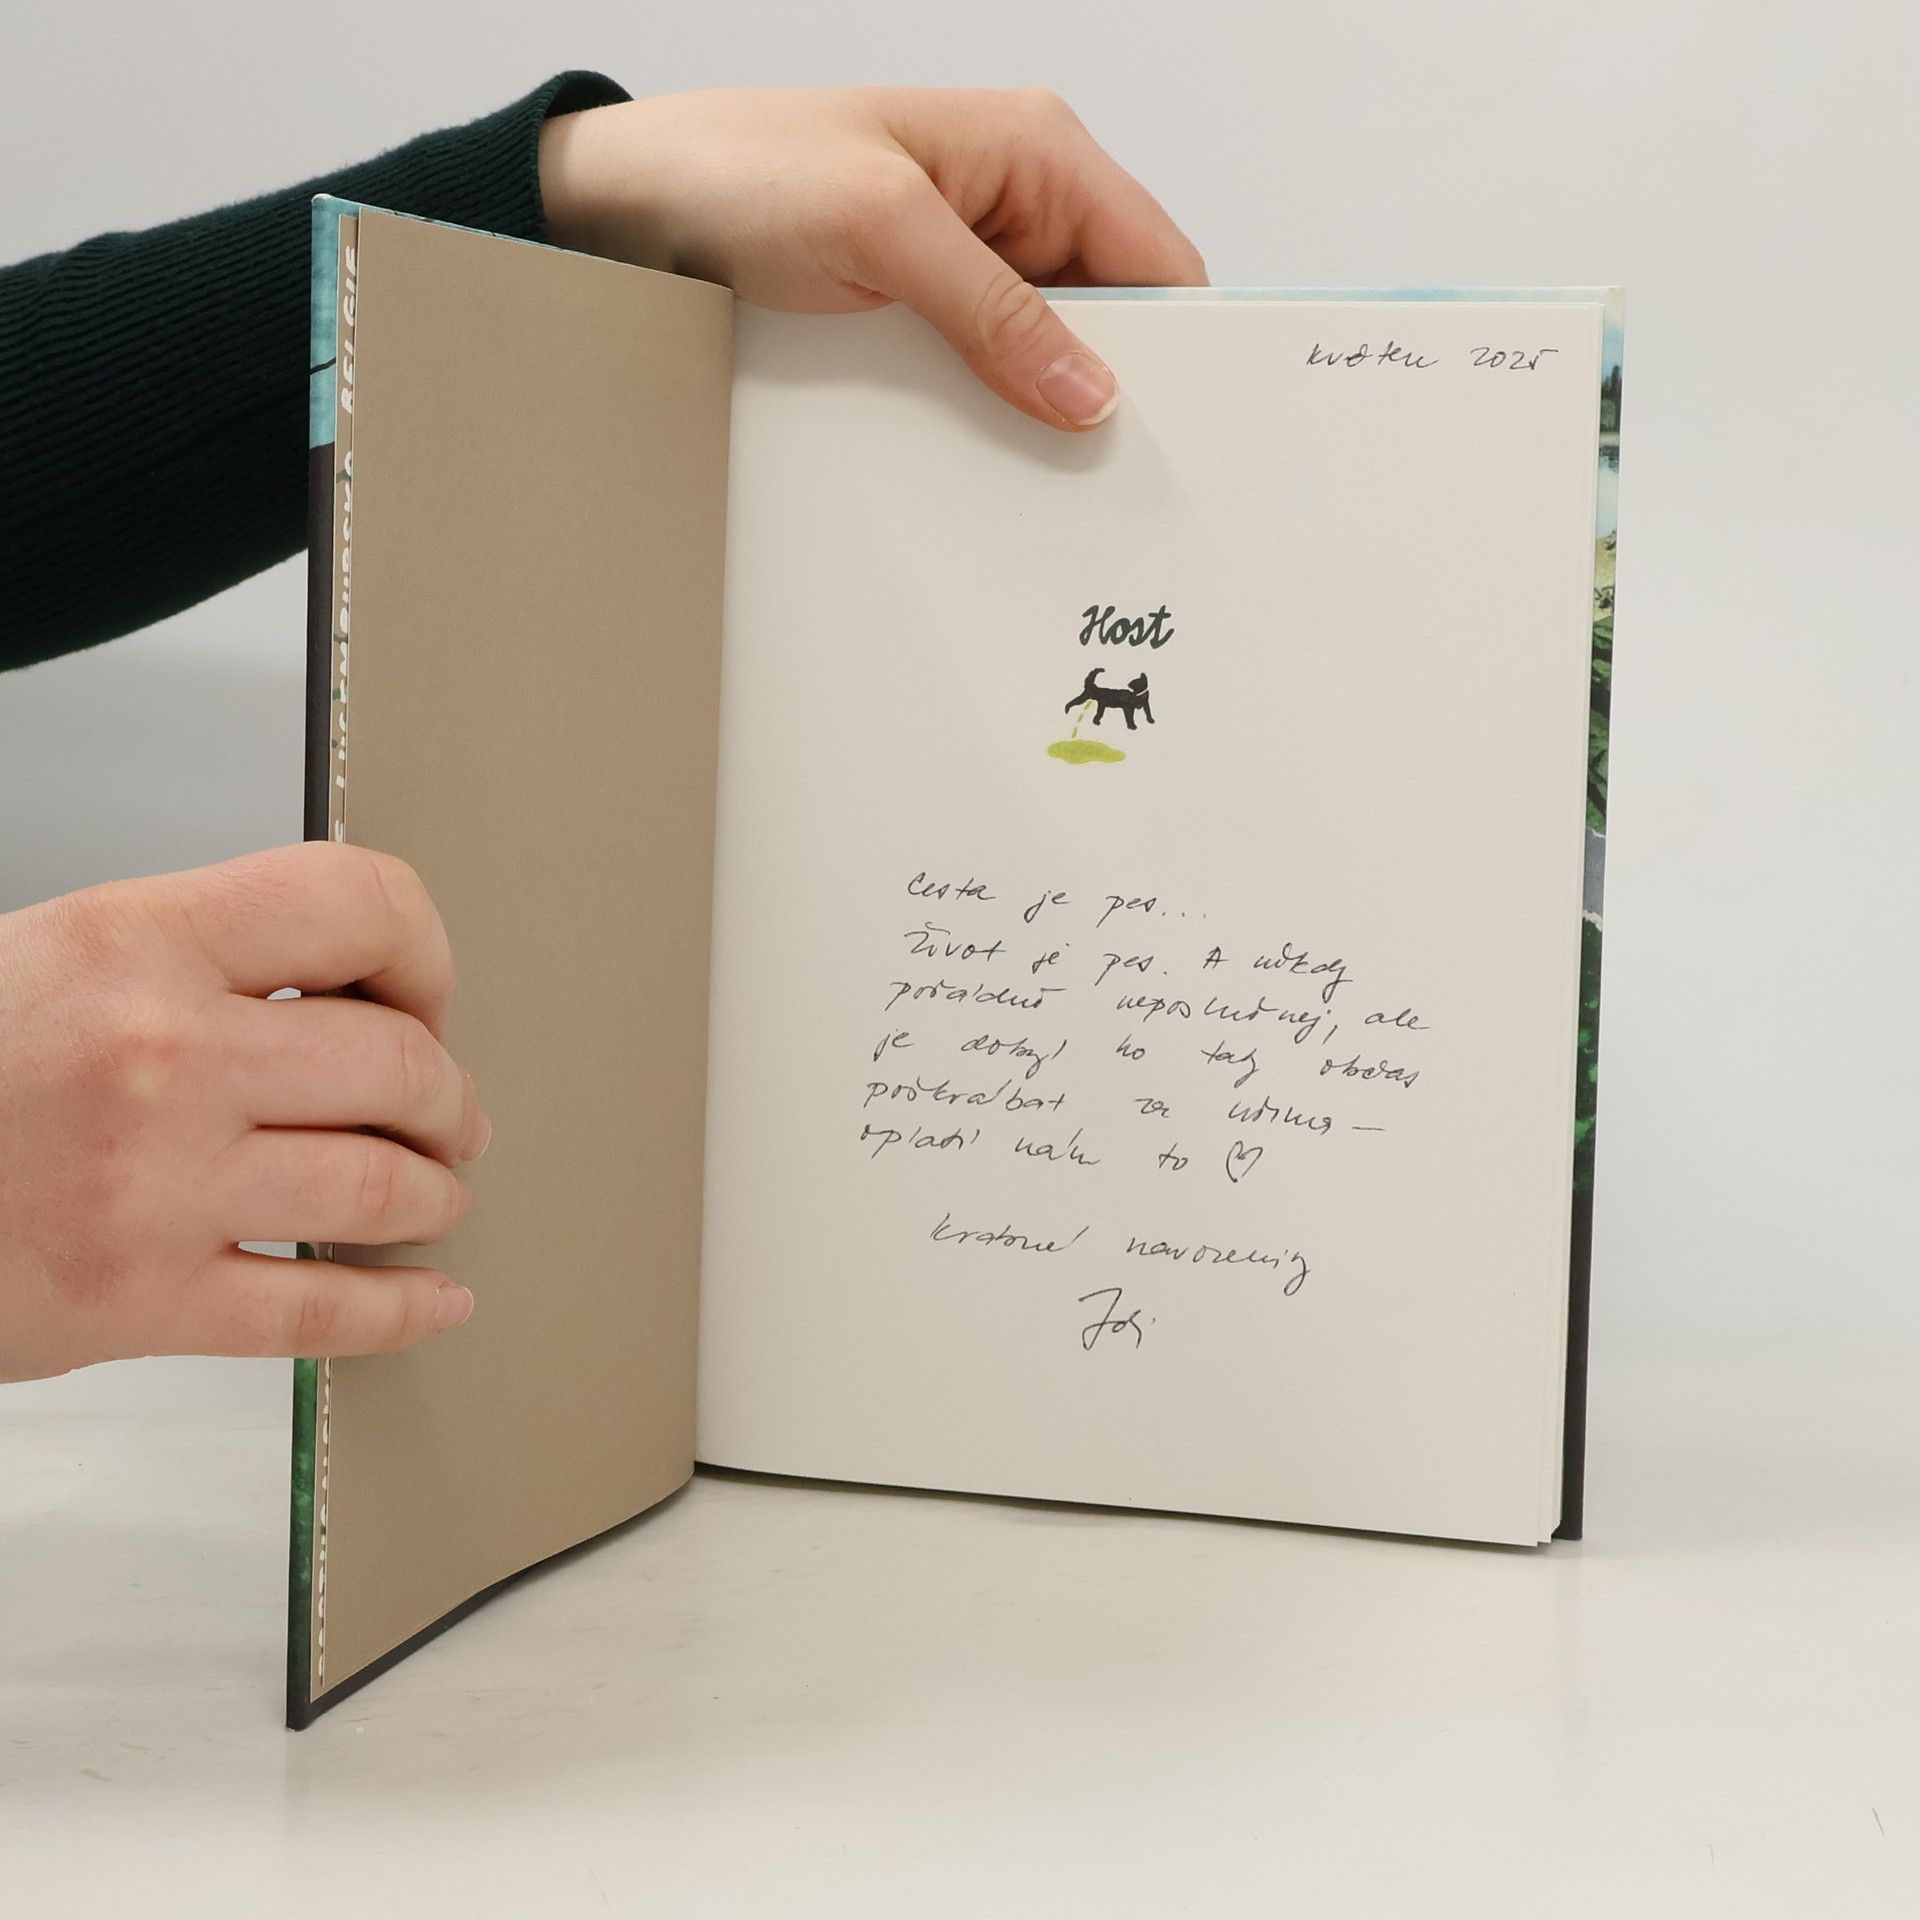 květen 2025
Host
Cesta je pes...
Život je pes. A někdy
pořádně neposlušnej, ale
je dobrý ho taky občas
poškrábat za ušima —
oplatí nám to ♡
krásné narozeniny
BELGIE